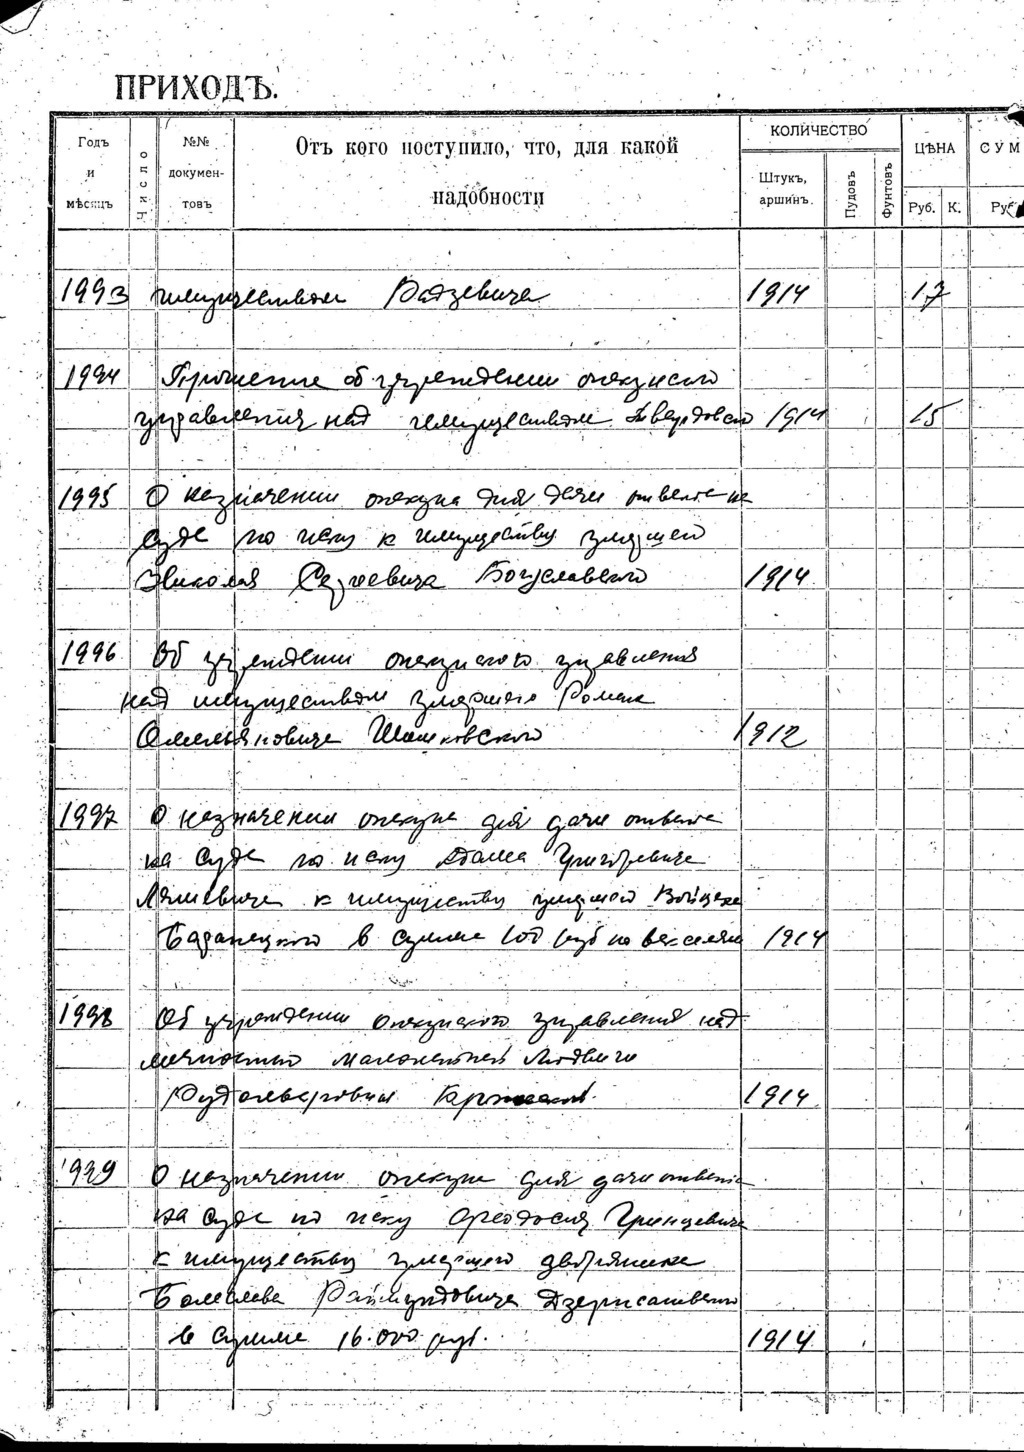 ПРИХОДЪ.
Годъ и мѣсяцъ Число №№ документовъ Отъ кого поступило, что, для какой надобности КОЛИЧЕСТВО Штукъ, аршинъ. Пудовъ Фунтовъ ЦѢНА Руб. К. СУМ Руб
1993 имуществом Радзевича 1914 17
1994 Прошение об учреждении опекунского
управления над имуществом Твердовско 1914 15
1995 О назначении опекуна для дачи ответа на
суде по иску к имуществу умершего
Николая Сергеевича Богуславского 1914
1996 Об учреждении опекунского управления
над имуществом умершего Роман
Омельяновича Шашковского 1912
1997 О назначении опекуна для дачи ответа
на суде по иску Адама Григорьевича
к имуществу умершего Войцеха
в сумме 100 руб по векселям 1914
1998 Об учреждении опекунского управления над
личностью малолетней Людвиги
Рудольфовны 1914
1999 О назначении опекуна для дачи ответа
на суде по иску Феодосия Гринцевича
к имуществу умершего дворянина
Болеслава Раймундовича
в сумме 16.000 руб. 1914